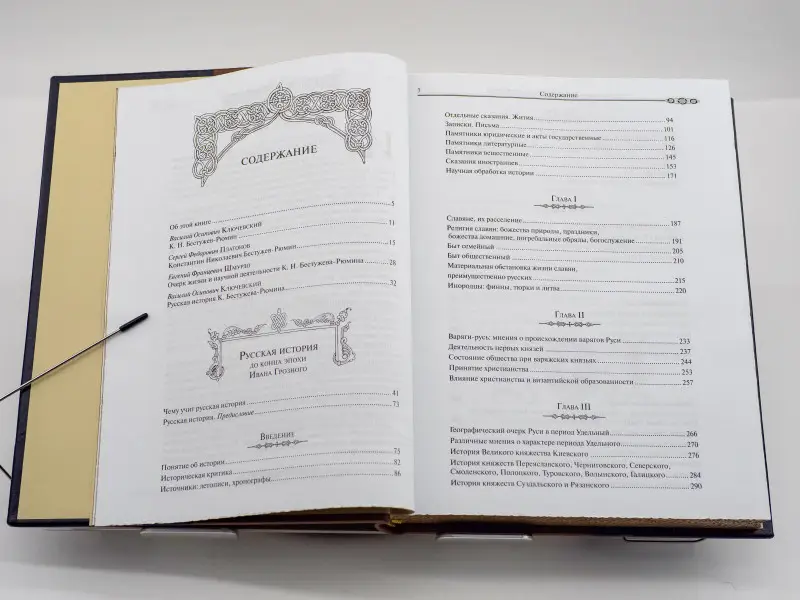 СОДЕРЖАНИЕ
Об этой книге 5
Василий Осипович Ключевский
К. Н. Бестужев-Рюмин 11
Сергей Федорович Платонов
Константин Николаевич Бестужев-Рюмин 15
Евгений Францевич Шмурло
Очерк жизни и научной деятельности К. Н. Бестужева-Рюмина 28
Василий Осипович Ключевский
Русская история К. Бестужева-Рюмина 32
Русская история
до конца эпохи
Ивана Грозного
Чему учит русская история 41
Русская история. Предисловие 73
Введение
Понятие об истории 75
Историческая критика 82
Источники: летописи, хронографы 86
Содержание
Отдельные сказания. Жития 94
Записки. Письма 101
Памятники юридические и акты государственные 116
Памятники литературные 126
Памятники вещественные 145
Сказания иностранцев 153
Научная обработка истории 171
Глава I
Славяне, их расселение 187
Религия славян: божества природы, праздники,
божества домашние, погребальные обряды, богослужение 191
Быт семейный 205
Быт общественный 210
Материальная обстановка жизни славян,
преимущественно русских 215
Инородцы: финны, тюрки и литва 220
Глава II
Варяги-русь: мнения о происхождении варягов Руси 233
Деятельность первых князей 237
Состояние общества при варяжских князьях 244
Принятие христианства 253
Влияние христианства и византийской образованности 257
Глава III
Географический очерк Руси в период Удельный 266
Различные мнения о характере периода Удельного 270
История Великого княжества Киевского 276
История княжеств Переяславского, Черниговского, Северского,
Смоленского, Полоцкого, Туровского, Волынского, Галицкого 284
История княжеств Суздальского и Рязанского 290